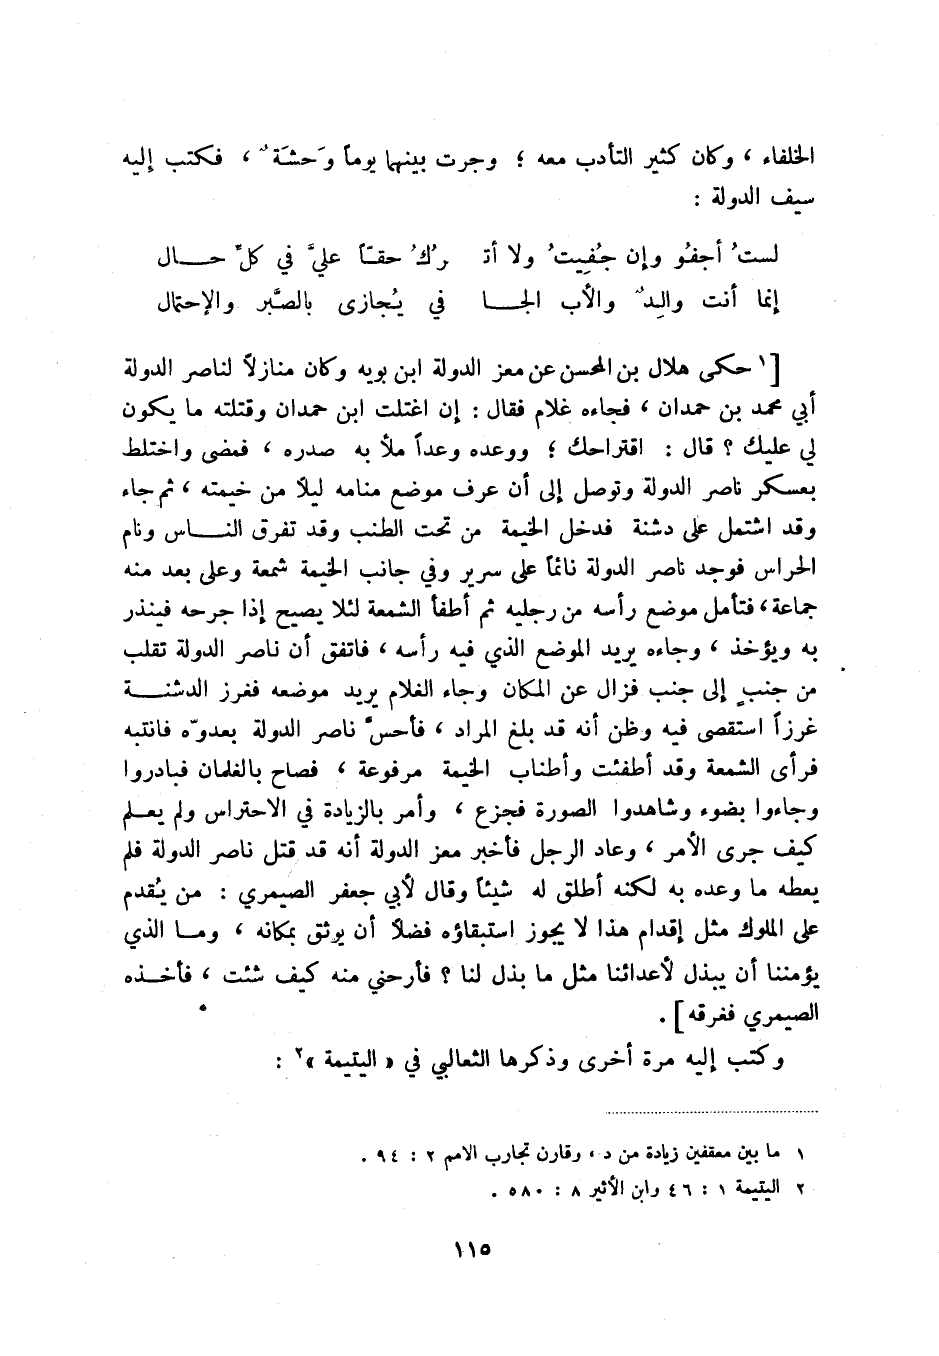 الخلفاء ، وكان كثير التأدب معه ؛ وجرت بينهما يوماً وَحشَة ٌ ، فكتب إليه
سيف الدولة :
لستُ أجفُو وإن جُفِيتُ ولا أتـ ركُ حقـّاً عليَّ في كلِّ حــال
إنما أنت والِدٌ والأب الجــا في يُجازى بالصَّبر والإحتمال
[١ حكى هلال بن المحسن عن معز الدولة ابن بويه وكان منازلاً لناصر الدولة
أبي محمد بن حمدان ، فجاءه غلام فقال : إن اغتلت ابن حمدان وقتلته ما يكون
لي عليك ؟ قال : اقتراحك ؛ ووعده وعداً ملأ به صدره ، فمضى واختلط
بعسكر ناصر الدولة وتوصل إلى أن عرف موضع منامه ليلاً من خيمته ، ثم جاء
وقد اشتمل على دشنة فدخل الخيمة من تحت الطنب وقد تفرق النــاس ونام
الحراس فوجد ناصر الدولة نائماً على سرير وفي جانب الخيمة شمعة وعلى بعد منه
جماعة ، فتأمل موضع رأسه من رجليه ثم أطفأ الشمعة لئلا يصيح إذا جرحه فينذر
به ويؤخذ ، وجاءه يريد الموضع الذي فيه رأسه ، فاتفق أن ناصر الدولة تقلب
من جنبٍ إلى جنب فزال عن المكان وجاء الغلام يريد موضعه فغرز الدشنــة
غرزاً استقصى فيه وظن أنه قد بلغ المراد ، فأحسَّ ناصر الدولة بعدوّه فانتبه
فرأى الشمعة وقد أطفئت وأطناب الخيمة مرفوعة ، فصاح بالغلمان فبادروا
وجاءوا بضوء وشاهدوا الصورة فجزع ، وأمر بالزيادة في الاحتراس ولم يعـلم
كيف جرى الأمر ، وعاد الرجل فأخبر معز الدولة أنه قد قتل ناصر الدولة فلم
يعطه ما وعده به لكنه أطلق له شيئاً وقال لأبي جعفر الصيمري : من يُقدم
على الملوك مثل إقدام هذا لا يجوز استبقاؤه فضلاً أن يوثق بمكانه ، ومـا الذي
يؤمننا أن يبذل لأعدائنا مثل ما بذل لنا ؟ فأرحني منه كيف شئت ، فأخـذه
الصيمري فغرقه] .
وكتب إليه مرة أخرى وذكرها الثعالبي في « اليتيمة »٢ :
١ ما بين معقفين زيادة من د ، وقارن تجارب الامم ٢ : ٩٤ .
٢ اليتيمة ١ : ٤٦ وابن الأثير ٨ : ٥٨٠ .
١١٥